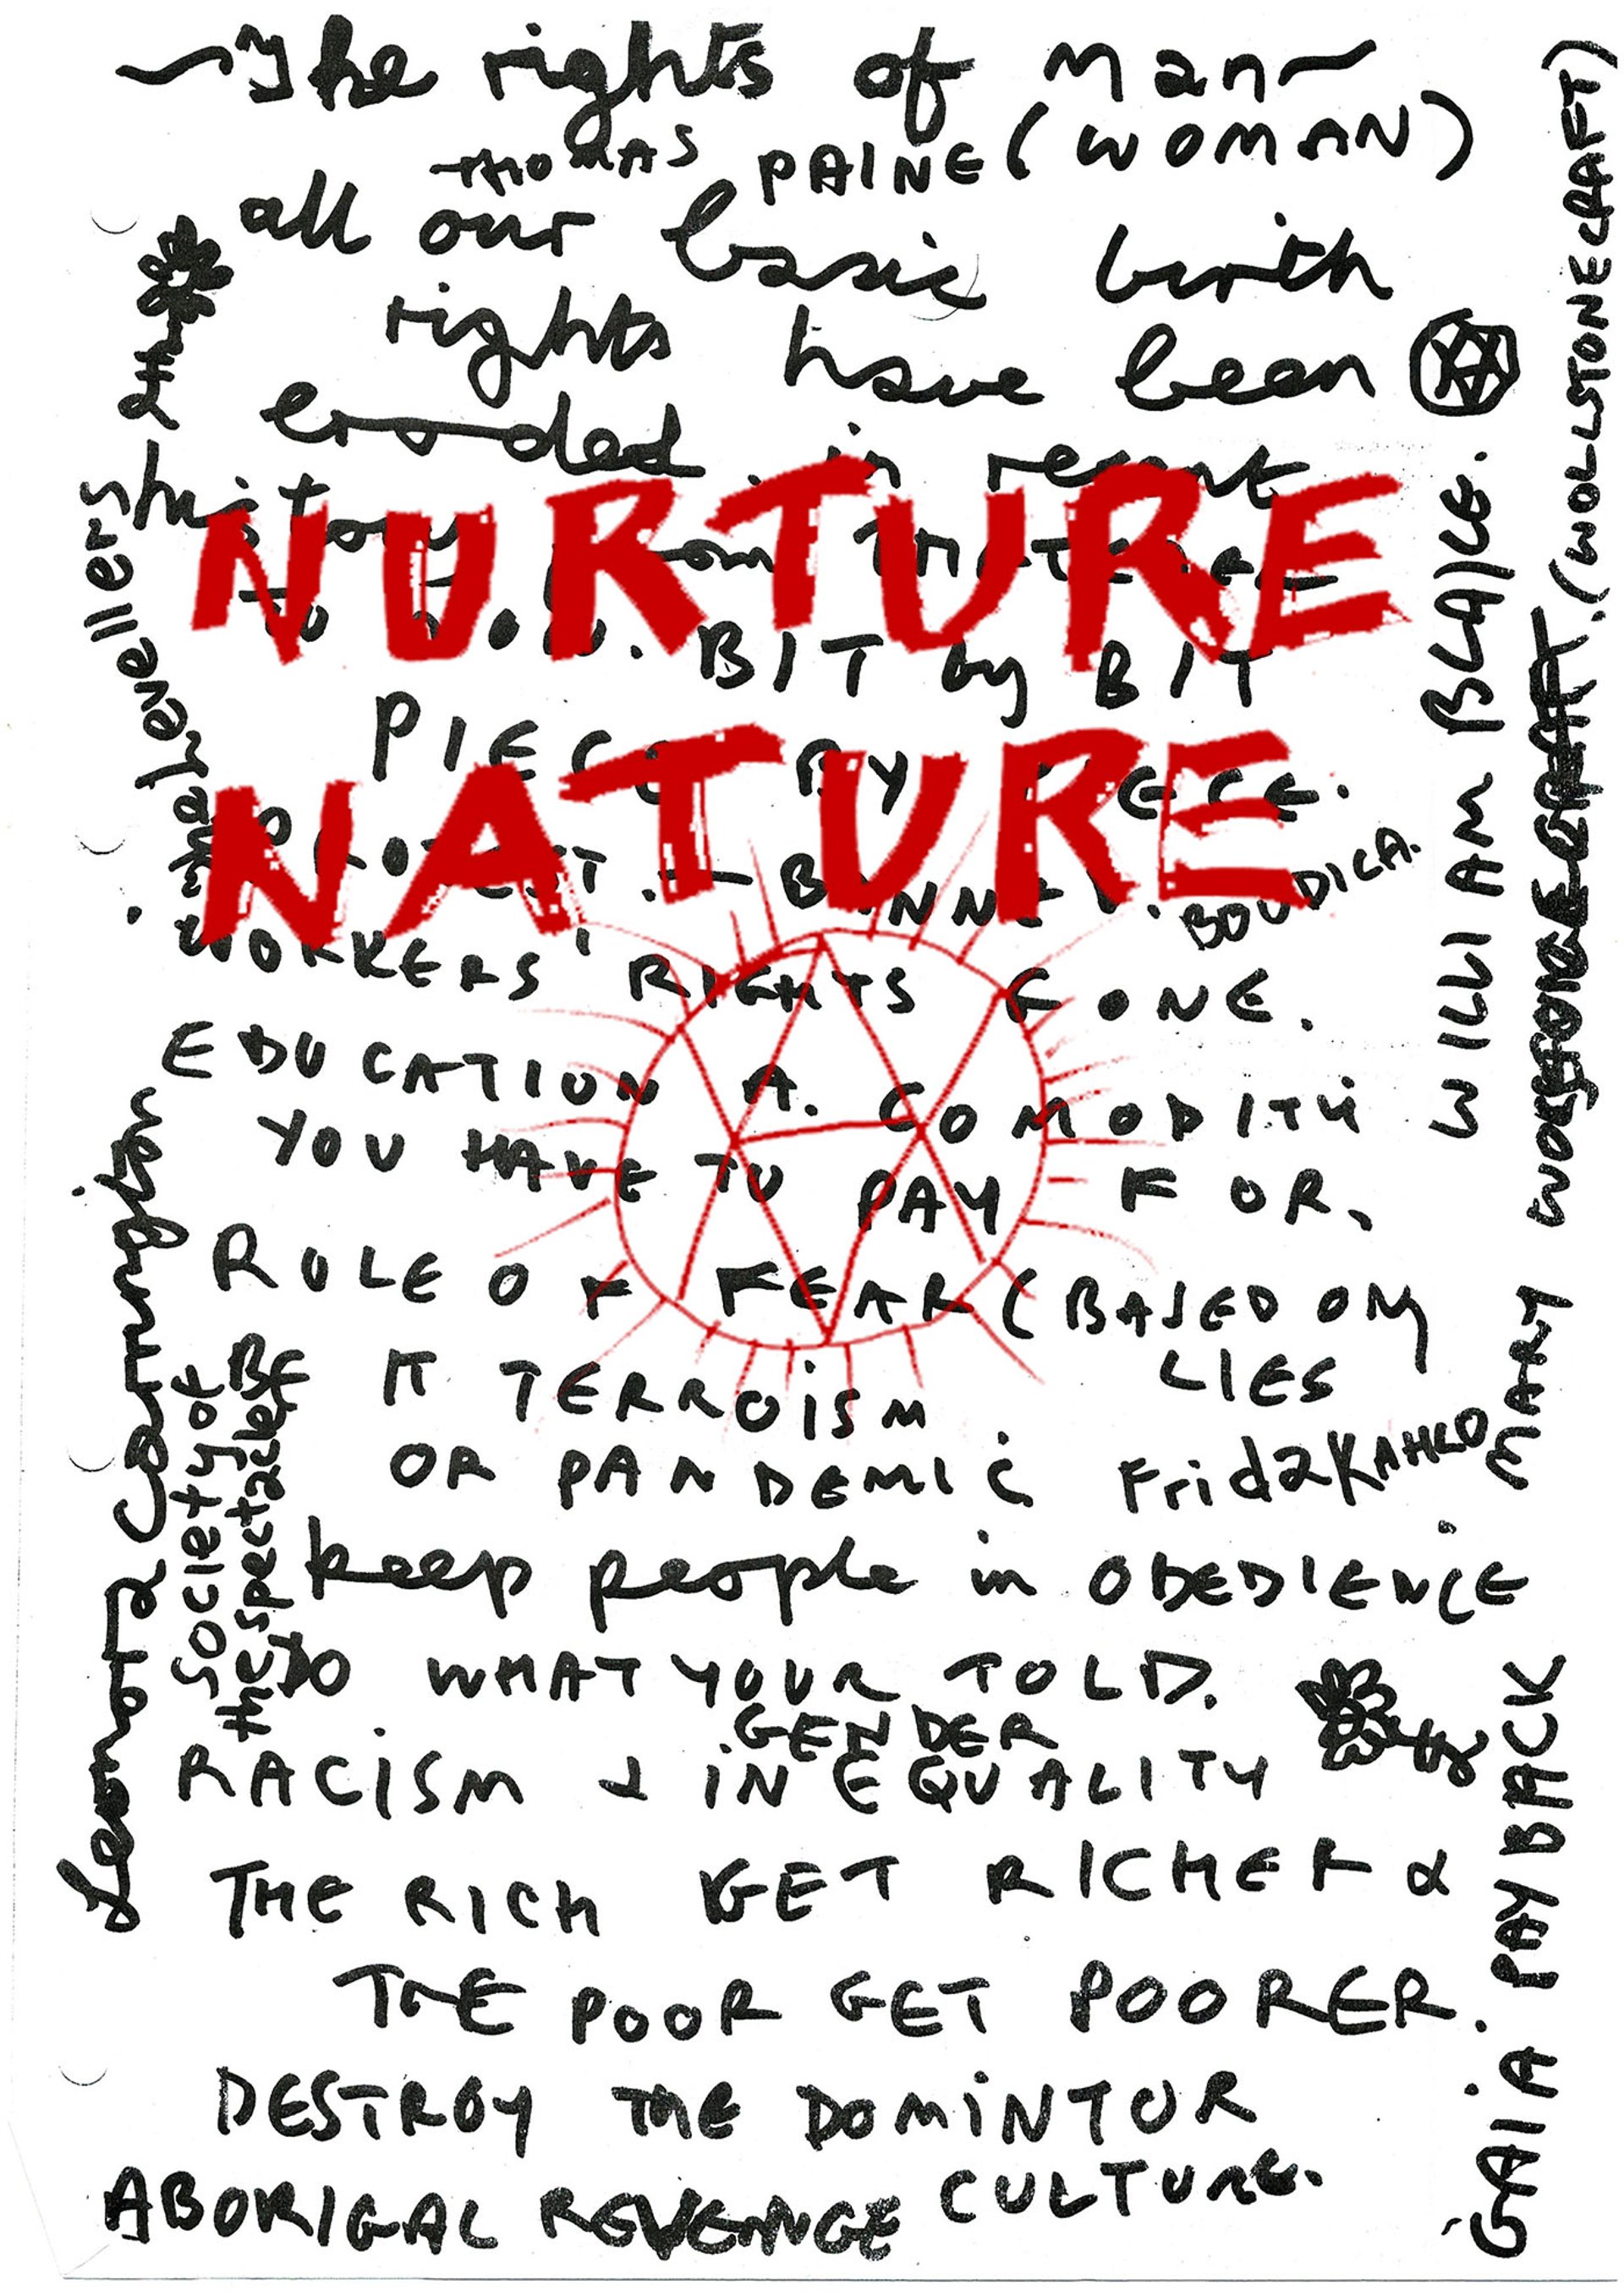 The rights of man
THOMAS PAINE (WOMAN)
all our basic birth
rights have been
eroded in recent
history
BIT by BIT
PIECE BY PIECE.
BOUDICA.
WORKERS' RIGHTS GONE.
EDUCATION A. COMODITY
YOU HAVE TO PAY FOR.
RULE OF FEAR (BASED ON
LIES
IT TERROISM
OR PANDEMIC
Frida KAHLO
keep people in OBEDIENCE
DO WHAT YOUR TOLD.
GENDER
RACISM & INEQUALITY
THE RICH GET RICHER &
THE POOR GET POORER.
DESTROY THE DOMINTOR
CULTURE.
ABORIGAL REVENGE
NURTURE
NATURE
the Levellers
Leonora Carrington
Society of
the spectacle
WILLIAM BLAKE.
GAIA PAYBACK
MARY
(WOLLSTONECRAFT)